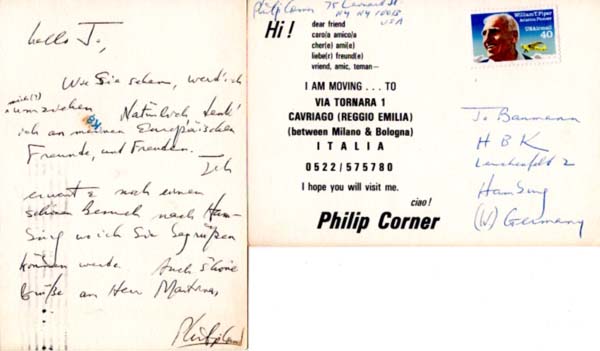 hello Jo,
Wie Sie sehen, werd' ich
mich(?)
umziehen. Natürlich, denk'
ich an meinen Europäischen
Freunde, und Freuden.
Ich
erwart' noch einen
schönen Besuch nach Ham-
burg wo ich Sie begrüßen
können werde. Auch schöne
Grüße an Herr
Philip Corner
Philip Corner 75 Leonard St.
NY NY 10013
USA
Hi !
dear friend
caro/a amico/a
cher(e) ami(e)
liebe(r) freund(e)
vriend, amic, teman—
I AM MOVING . . . TO
VIA TORNARA 1
CAVRIAGO (REGGIO EMILIA)
(between Milano & Bologna)
I T A L I A
0522 / 575780
I hope you will visit me.
ciao!
Philip Corner
William T. Piper
Aviation Pioneer
USAirmail
40
Jo Baumann
HBK
Lerchenfeld 2
Hamburg
(W) Germany